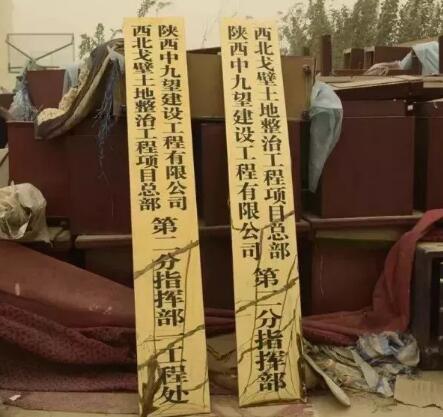 陕西中九望建设工程有限公司
西北戈壁土地整治工程项目总部
第二分指挥部 一工程处
陕西中九望建设工程有限公司
西北戈壁土地整治工程项目总部
第一分指挥部